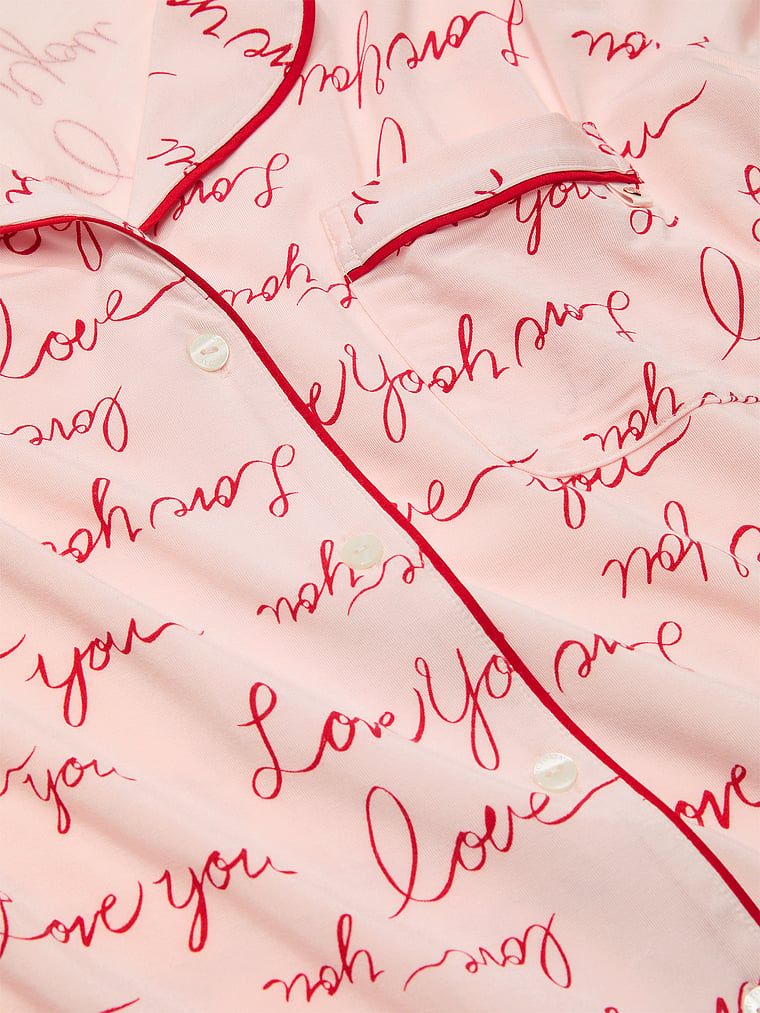 Love you
Love you
you
Love
you
love
Love you
you
love
you
Love you
you
Love you
you
you
love
you
Love You
love
you
love
love you
love
you love